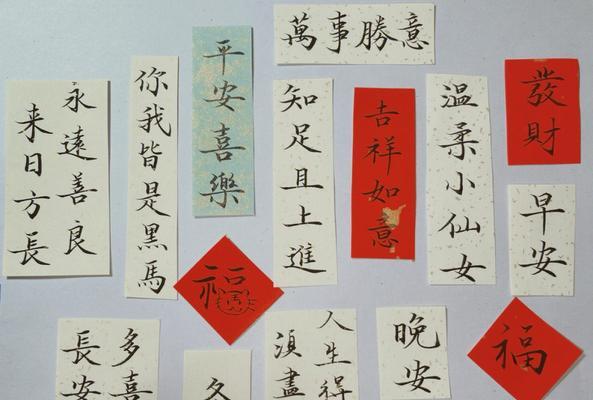 萬事勝意
永遠善良
来日方長
你我皆是黑馬
平安喜樂
知足且上進
吉祥如意
温柔小仙女
發財
早安
福
福
多喜
長安
人生得
湏盡
晚安